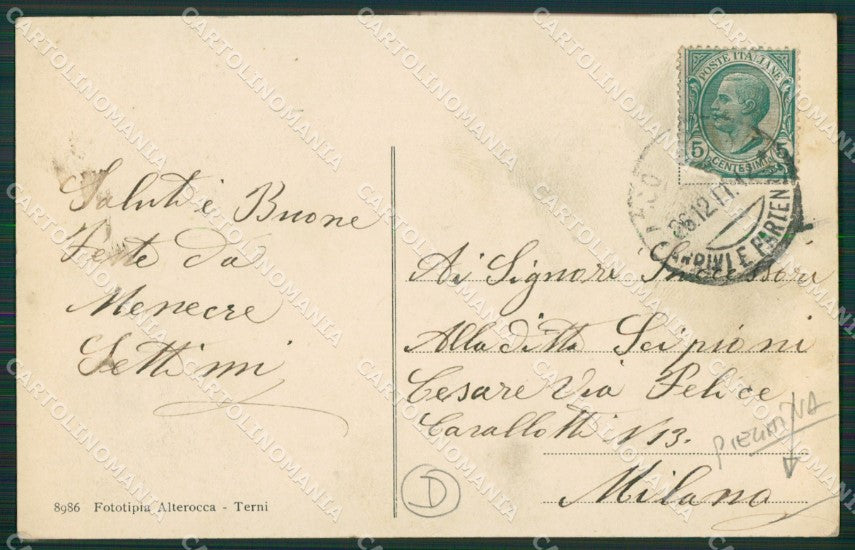 Saluti e Buone
Feste da
Menecre
Settimi
8986 Fototipia Alterocca - Terni
POSTE ITALIANE
5 CENTESIMI 5
26.12.11
ARRIVI E PARTEN
Ai Signori Successori
Alla ditta Scipioni
Cesare Via Felice
Cavallotti N 13.
Milano
PIEGHINA
D
CARTOLINOMANIA